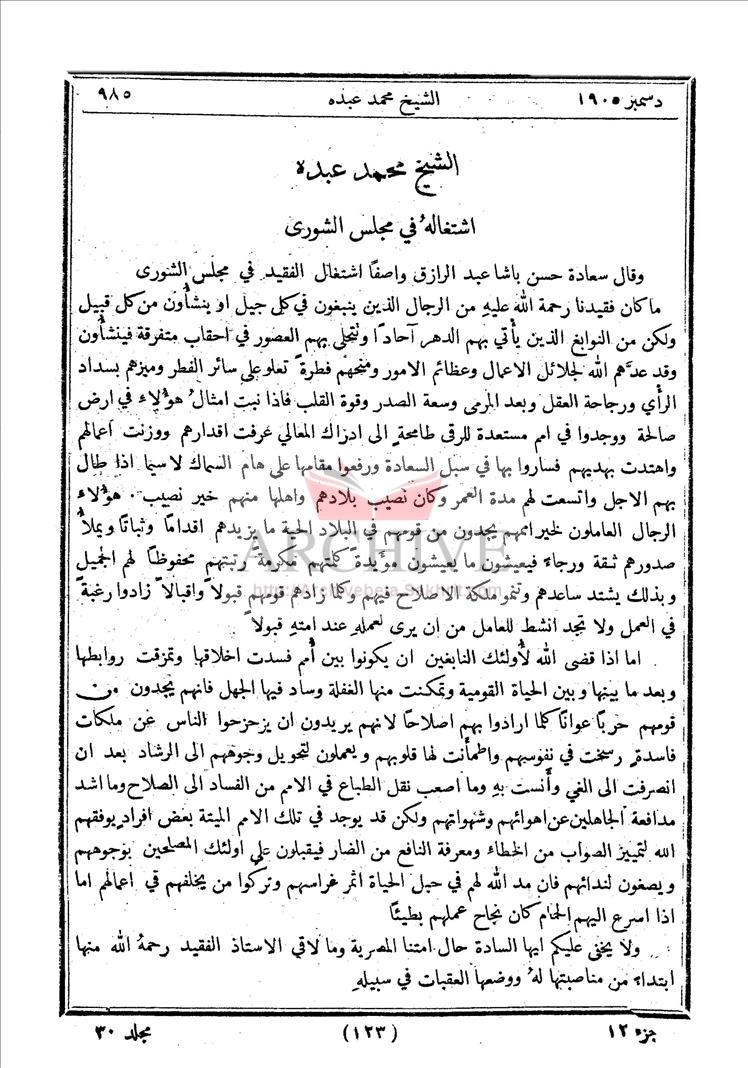 دسمبر ١٩٠٥ الشيخ محمد عبده ٩٨٥
الشيخ محمد عبده
اشتغالهُ في مجلس الشورى
وقال سعادة حسن باشا عبد الرازق واصفًا اشتغال الفقيد في مجلس الشورى
ما كان فقيدنا رحمة الله عليهِ من الرجال الذين ينبغون في كل جيل او ينشأون من كل قبيل
ولكن من النوابغ الذين يأتي بهم الدهر آحادًا وتتحلى بهم العصور في احقاب متفرقة فينشأون
وقد عدَّهم الله لجلائل الاعمال وعظائم الامور ومنحهم فطرةً تعلو على سائر الفطر وميزهم بسداد
الرأي ورجاحة العقل وبعد المرمى وسعة الصدر وقوة القلب فاذا نبت امثالُ هؤلاء في ارض
صالحة ووجدوا في امم مستعدة للرقي طامحةٍ الى ادراك المعالي عرفت اقدارهم ووزنت اعمالهم
واهتدت بهديهم فساروا بها في سبل السعادة ورفعوا مقامها على هام السماك لا سيما اذا طال
بهم الاجل واتسعت لهم مدة العمر وكان نصيب بلادهم واهلها منهم خير نصيب ٠ هؤلاء
الرجال العاملون لخير اممهم يجدون من قومهم في البلاد الحية ما يزيدهم اقدامًا وثباتًا ويملأُ
صدورهم ثقة ورجاء فيعيشون ما يعيشون مؤَيدةً كلمتهم مكرمةً رتبتهم محفوظًا لهم الجميل
وبذلك يشتد ساعدهم وتنمو ملكة الاصلاح فيهم وكلما زادهم قومهم قبولاً واقبالاً زادوا رغبةً
في العمل ولا تجد انشط للعامل من ان يرى لعملهِ عند امتهِ قبولاً
اما اذا قضى الله لأولئك النابغين ان يكونوا بين أُمم فسدت اخلاقها وتمزقت روابطها
وبعد ما بينها وبين الحياة القومية وتمكنت منها الغفلة وساد فيها الجهل فانهم يجدون من
قومهم حربًا عوانًا كلما ارادوا بهم اصلاحًا لانهم يريدون ان يزحزحوا الناس عن ملكات
فاسدةٍ رسخت في نفوسهم واطمأنت لها قلوبهم ويعملون لتحويل وجوههم الى الرشاد بعد ان
انصرفت الى الغي وأَنست بهِ وما اصعب نقل الطباع في الامم من الفساد الى الصلاح وما اشد
مدافعة الجاهلين عن اهوائهم وشهواتهم ولكن قد يوجد في تلك الامم الميتة بعض افرادٍ يوفقهم
الله لتمييز الصواب من الخطاء ومعرفة النافع من الضار فيقبلون على اولئك المصلحين بوجوههم
ويصغون لندائهم فان مد الله لهم في حبل الحياة اثمر غراسهم وتركوا من يخلفهم في اعمالهم اما
اذا اسرع اليهم الحمام كان نجاح عملهم بطيئًا
ولا يخفى عليكم ايها السادة حال امتنا المصرية وما لاقي الاستاذ الفقيد رحمهُ الله منها
ابتداء من مناصبتها لهُ ووضعها العقبات في سبيلهِ
جزء ١٢ (١٢٣) مجلد ٣٠
ARCHIVE
http://Archivebeta.Sakhrit.com